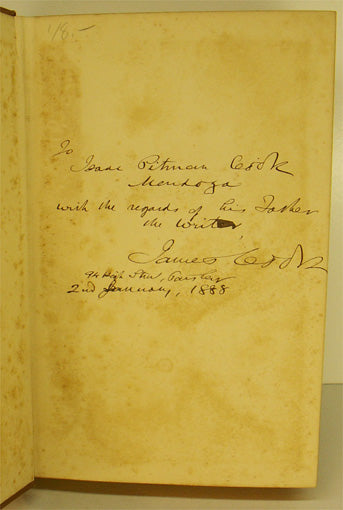 48.-
To
Isaac Pitman Cook
Mendoza
with the regards of his Father
the writer,
James Cook
94 High Street, Paisley
2nd January, 1888